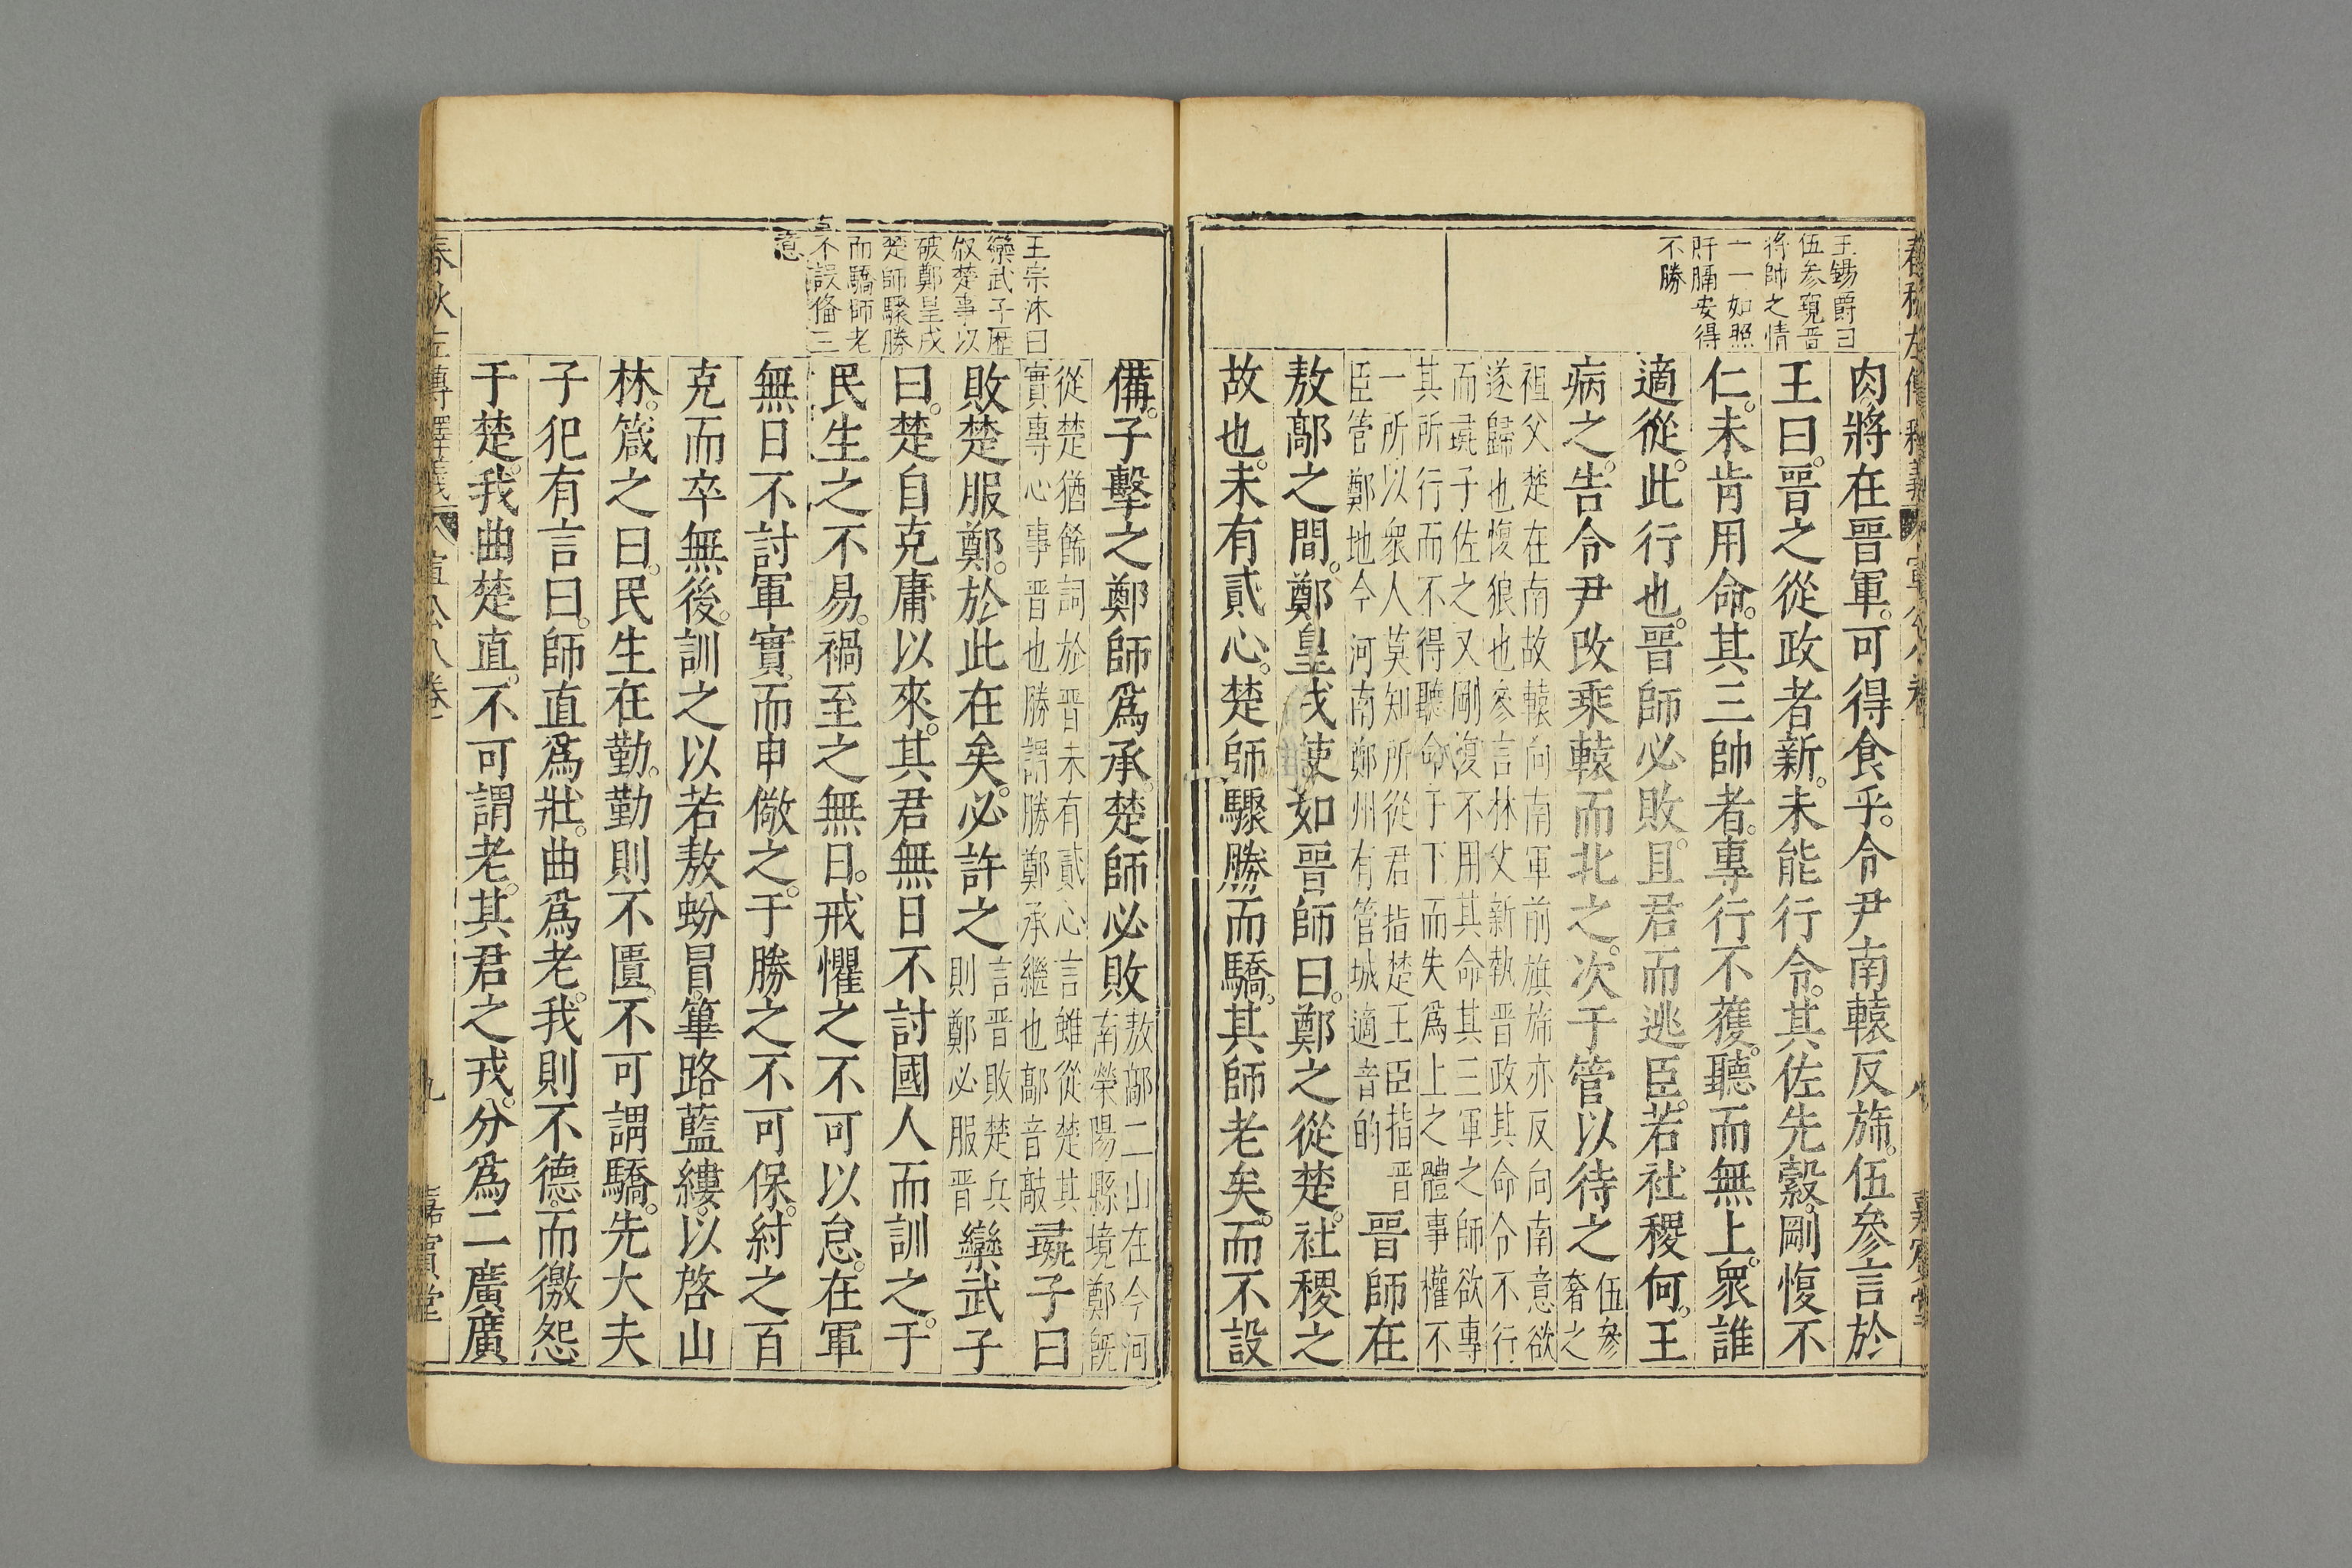 王錫爵曰
伍參窺晋
將帥之情
一一如照
肝膈安得
不勝
肉。將在晉軍。可得食乎。令尹南轅反旆。伍參言於
王曰。晉之從政者新。未能行令。其佐先縠。剛愎不
仁。未肯用命。其三帥者。專行不獲。聽而無上。衆誰
適從。此行也。晉師必敗。且君而逃臣。若社稷何。王
病之。告令尹改乘轅而北之。次于管以待之
伍參
奢之
祖父楚在南故轅向南軍前旗旆亦反向南意欲
遂歸也愎狼也參言林父新執晋政其命令不行
而彘子佐之又剛愎不用其命其三軍之師欲專
其所行而不得聽命于下而失爲上之體事權不
一所以衆人莫知所從君指楚王臣指晋
臣管鄭地今河南鄭州有管城適音的
晉師在
敖鄗之間。鄭皇戌使如晉師曰。鄭之從楚。社稷之
故也。未有貳心。楚師驟勝而驕。其師老矣。而不設
王宗沐曰
欒武子歷
叙楚事以
破鄭皇戌
楚師驟勝
而驕師老
不設備三
意
備。子擊之鄭師爲承。楚師必敗
敖鄗二山在今河
南滎陽縣境鄭旣
從楚猶餙詞於晋未有貳心言雖從楚其
實專心事晋也勝謂勝鄭承繼也鄗音敲
彘子曰
敗楚服鄭。於此在矣。必許之
言晋敗楚兵
則鄭必服晋
欒武子
曰。楚自克庸以來。其君無日不討國人而訓之。于
民生之不易。禍至之無日。戒懼之不可以怠。在軍
無日不討軍實。而申儆之。于勝之不可保。紂之百
克而卒無後。訓之以若敖蚡冒。篳路藍縷。以啓山
林。箴之曰。民生在勤。勤則不匱。不可謂驕。先大夫
子犯有言曰。師直爲壯。曲爲老。我則不德。而徼怨
于楚。我曲楚直。不可謂老。其君之戎。分爲二廣廣
春秋左傳釋義 八 宣公八卷 九 嘉賓堂